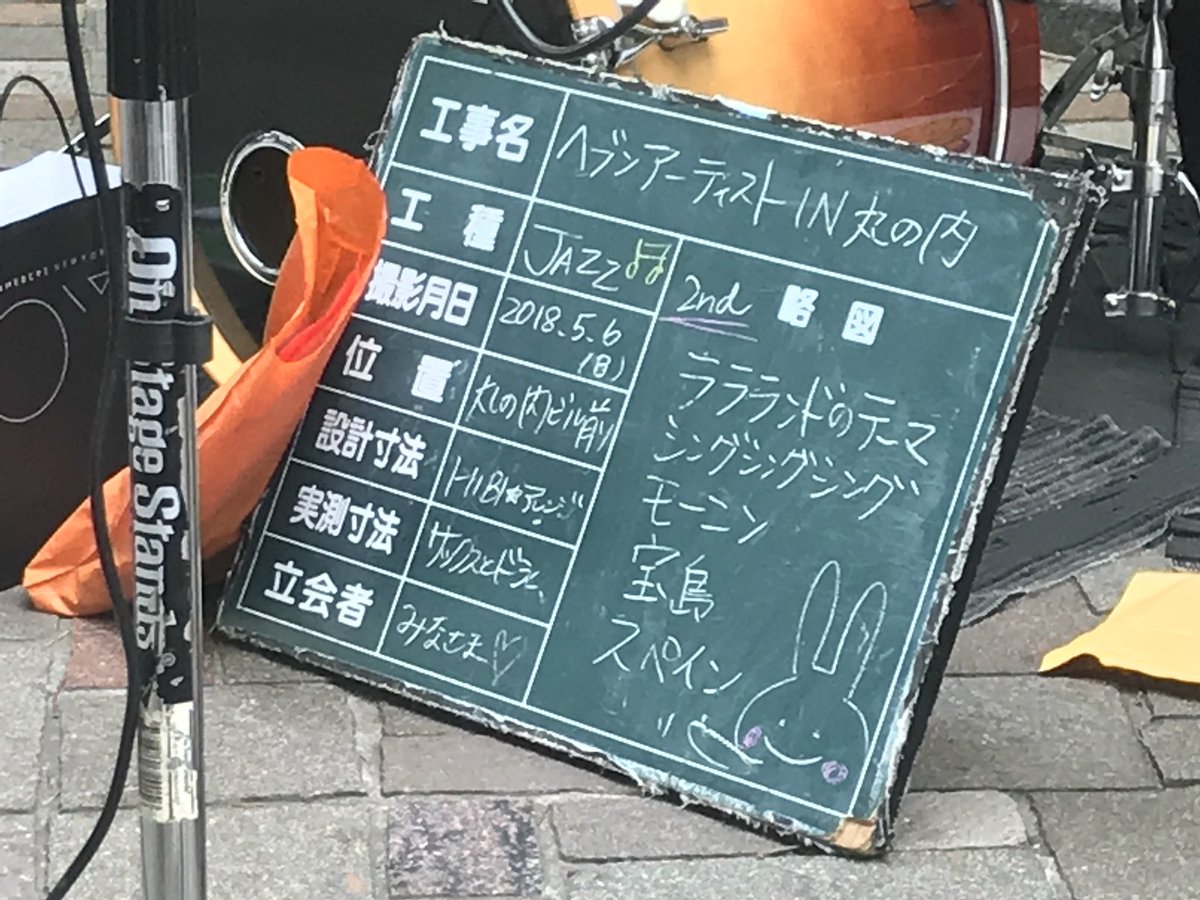 工事名 ヘブンアーティストIN丸の内
工種 JAZZ♫
撮影月日 2018.5.6
(日)
位置 丸の内ビル前
設計寸法 HIBI★アレンジ
実測寸法 サックスとドラム
立会者 みなさま♡
2nd 略図
ララランドのテーマ
シングシングシング
モーニン
宝島
スペイン
Stage Stands